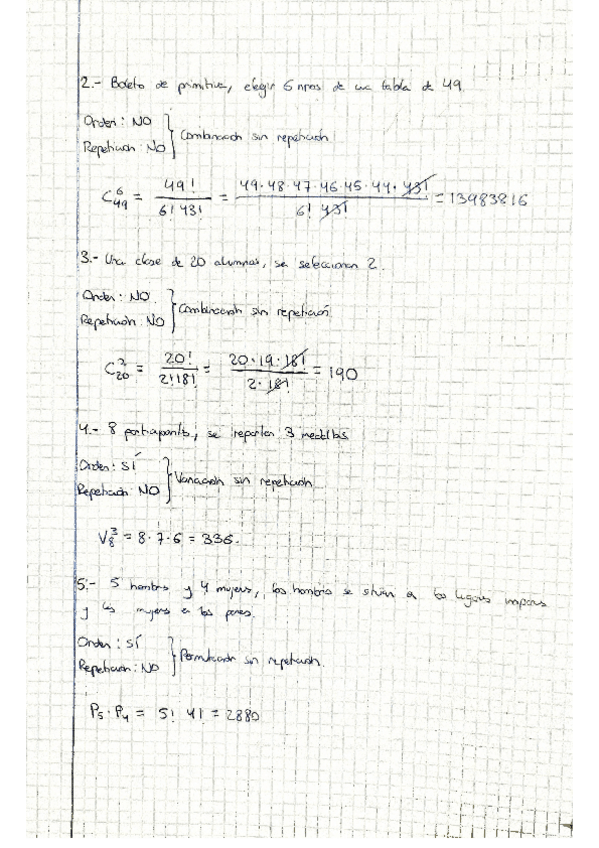 2.- Boleto de primitiva, elegir 6 nros de una tabla de 49.
Orden: NO
Repetición: NO } Combinación sin repetición
C⁶₄₉ = 49! / 6! 43! = 49·48·47·46·45·44·43! / 6! 43! = 13983816
3.- Una clase de 20 alumnos, se seleccionan 2.
Orden: NO
Repetición: NO } Combinación sin repetición
C²₂₀ = 20! / 2! 18! = 20·19·18! / 2·18! = 190
4.- 8 participantes, se reparten 3 medallas
Orden: SÍ
Repetición: NO } Variación sin repetición
V³₈ = 8·7·6 = 336.
5.- 5 hombres y 4 mujeres, los hombres se sitúan a los lugares impares
y las mujeres a los pares.
Orden: SÍ
Repetición: NO } Permutación sin repetición.
P₅·P₄ = 5! 4! = 2880